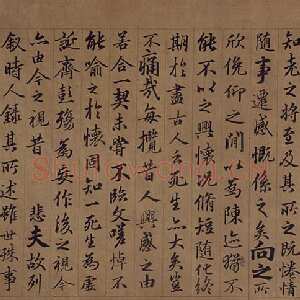 知老之将至及其所之既惓情
随事遷感慨係之矣向之所
欣俛仰之間以為陳迹猶不
能不以之興懷況脩短随化終
期於盡古人云死生亦大矣豈
不痛哉每攬昔人興感之由
若合一契未嘗不臨文嗟悼不
能喻之於懷固知一死生為虛
誕齊彭殤為妄作後之視今
亦由今之視昔 悲夫故列
叙時人録其所述雖世殊事